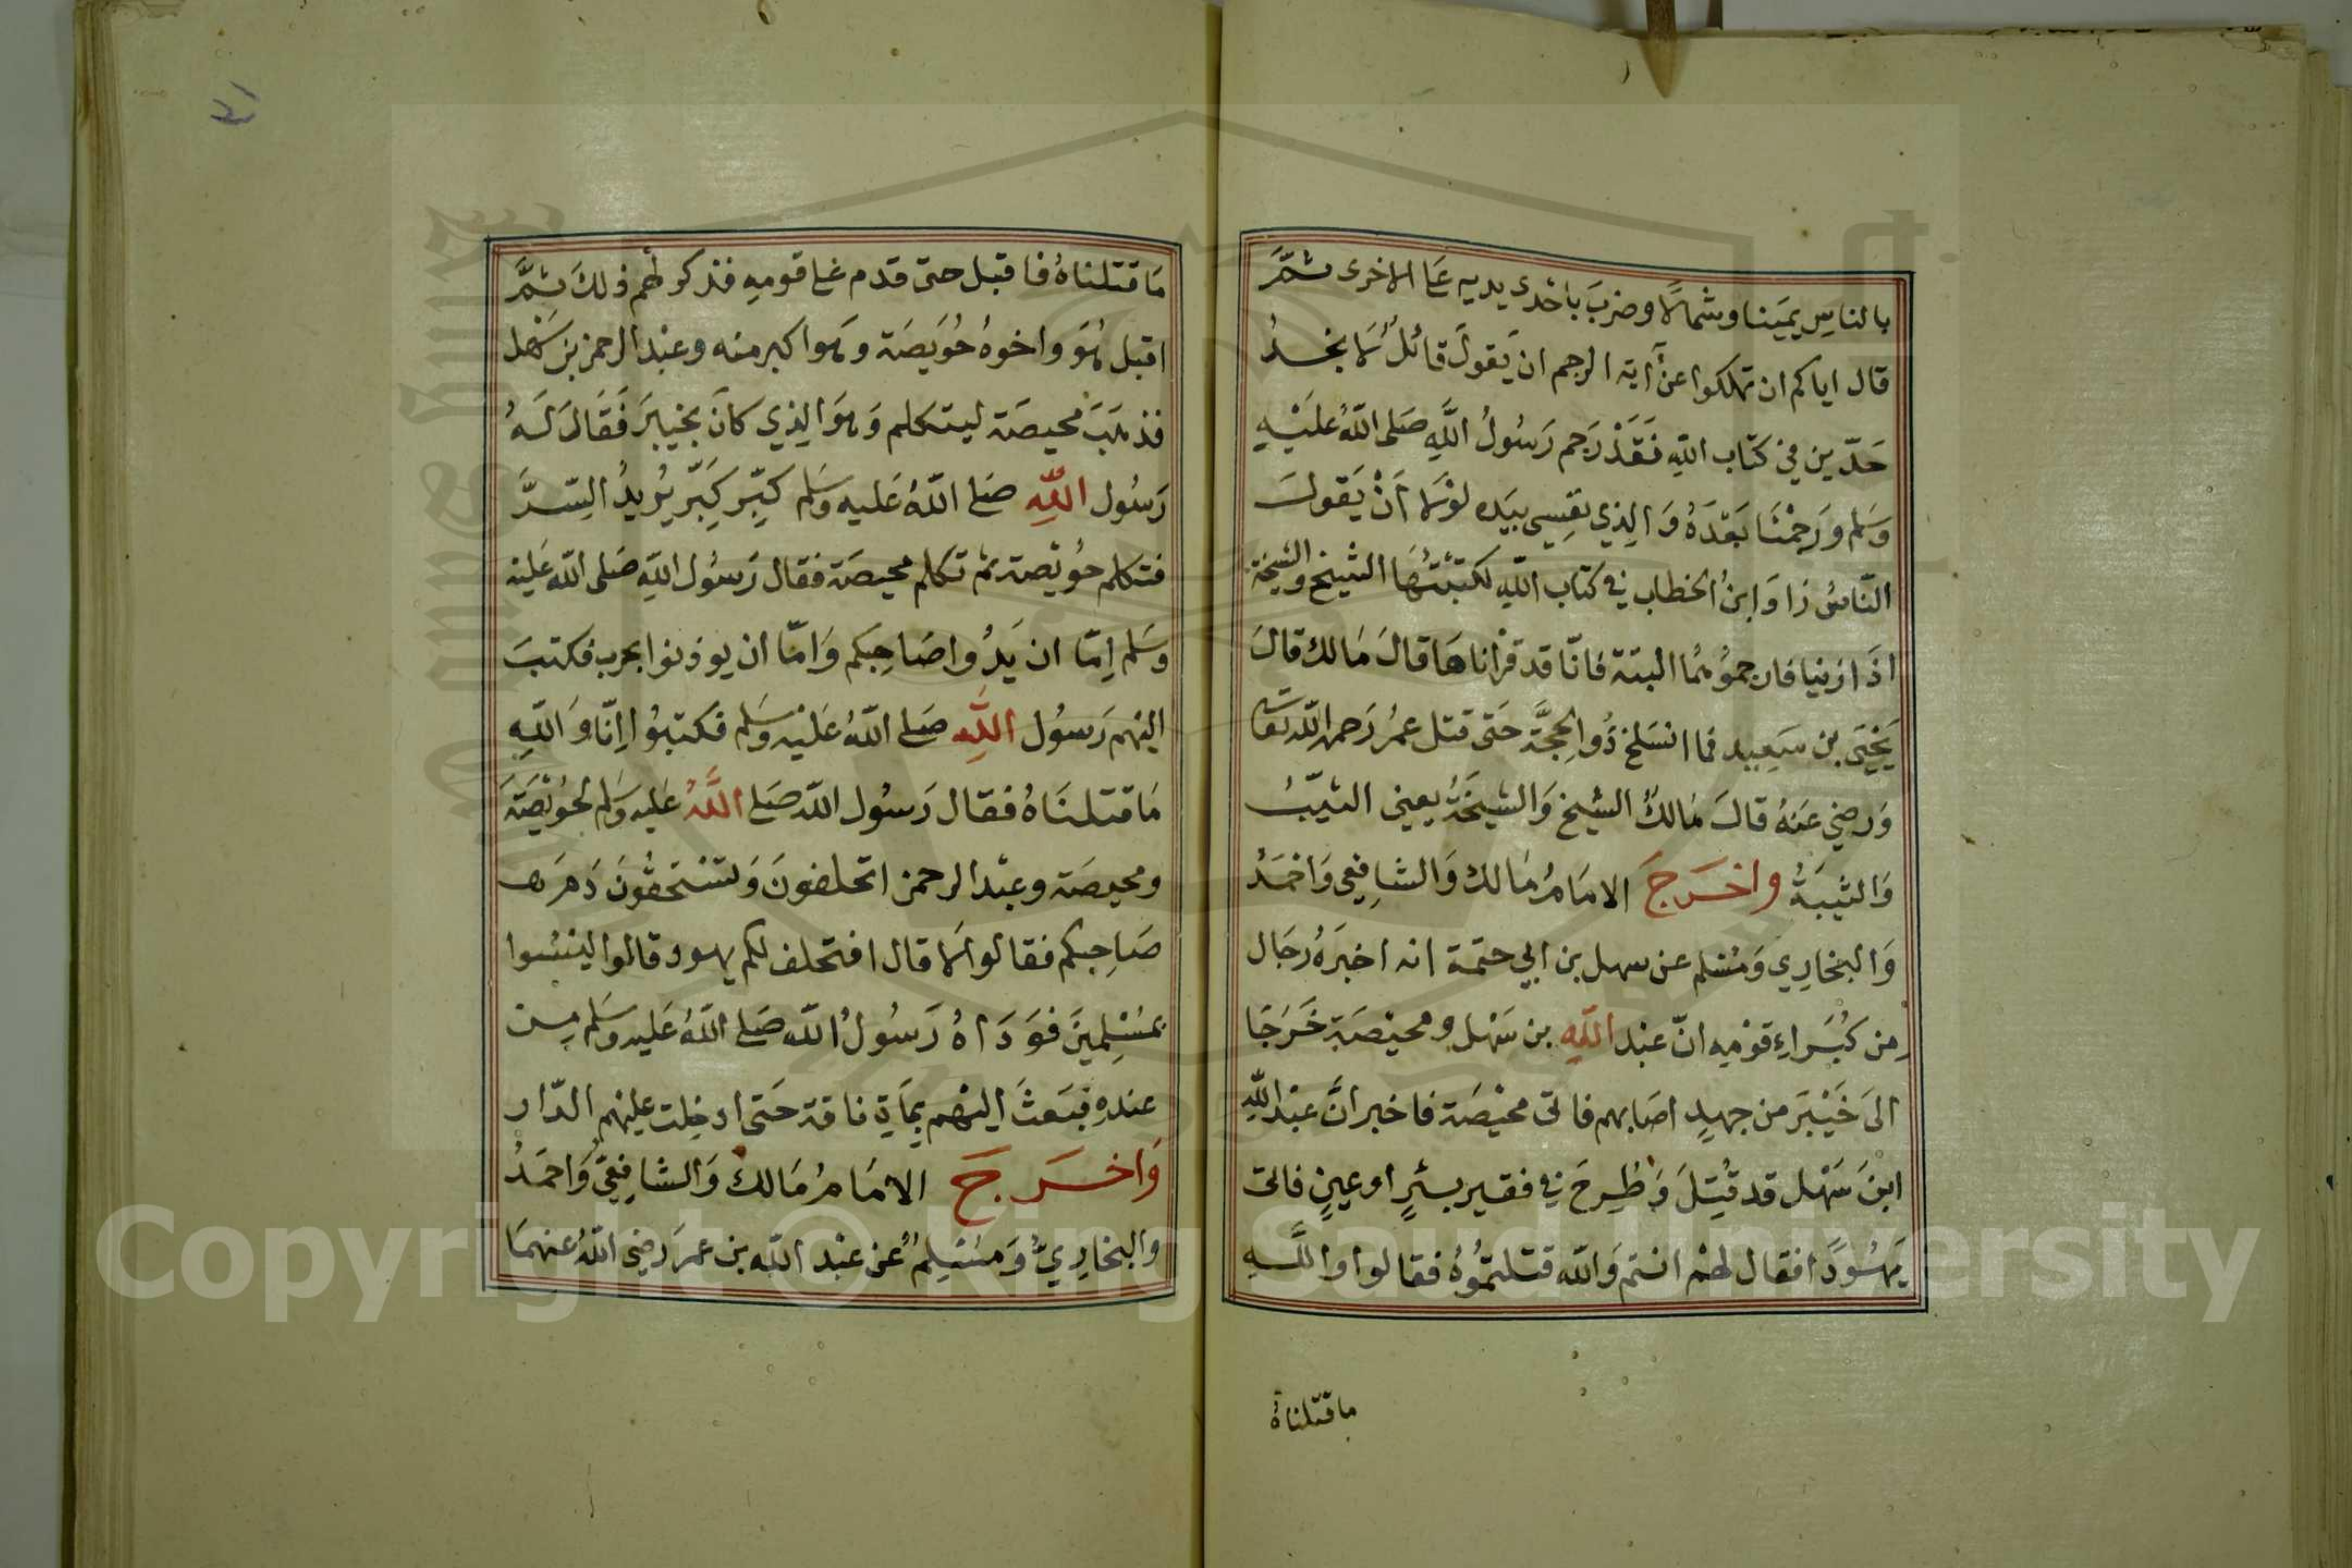 بالناسِ يَمينا وشمالًا وضربَ باحْدى يديه عَلى الاخرى ثُمَّ
قال اياكم ان تهلكوا عنْ آية الرجم ان يَقولَ قائلٌ لَا نجدُ
حَدّين في كتاب اللهِ فَقَدْ رَجم رَسُولُ اللهِ صَلى اللهُ عَلَيْهِ
وَسَلم وَرَجمْنَا بَعْدَهُ وَالذي نفسِي بيَده لوْلَا أنْ يَقولَ
النّاسُ زَادَ ابنُ الخطاب في كتاب اللهِ لكتَبْتُهَا الشيخ والشيخة
اذَا زنيا فارجمُوهُما البتة فانّا قد قرْأناهَا قالَ مَالك قالَ
يَحْيَى بن سَعِيد فما انسَلخ ذُو الحِجَّة حَتى قتل عمرُ رَحمه الله تعَالى
وَرضي عَنهُ قالَ مَالكٌ الشيخ وَالشيخَةُ يعني الثيّبُ
وَالثيبَةُ واخرَجَ الامَامُ مَالك وَالشافِعي وَاحْمَدُ
وَالبخارِي وَمُسْلم عن سهل بن ابي حتمة انه اخبَرَهُ رجَال
مِن كُبَراءِ قوْمِه انّ عبْد اللهِ بن سَهْل ومحيْصَة خَرَجَا
الىَ خَيْبَرَ من جهدٍ اصَابهم فاتى محيْصَة فاخبر انَّ عبْد اللهِ
ابنَ سَهْل قد قُتِلَ وَطُرِحَ في فقير بئرٍ او عينٍ فاتى
يَهُودًا فقال لهُمْ انتم وَالله قتلتمُوُهُ فقالوا واللهِ
ماقتلناهُ
مَا قتلناهُ فاقبل حتى قدم عَلى قومِهِ فذكر لهُم ذلكَ ثمَّ
اقبل هُوَ واخوهُ حُوَيصَة وهوَ اكبر منه وعبْد الرحمن بن سَهْل
فذهَبَ محيصَة ليتكلم وَهوَ الذي كانَ بخيبرَ فَقَالَ لَهُ
رَسُول اللهِ صَلى اللهُ عَليه وسَلم كبِّر كبِّر يُريدُ السّنَّ
فتكلم حُوَيْصة ثم تكلم محيصَة فقال رَسُول اللهِ صَلى الله عَليْه
وَسَلم اِمّا ان يَدُوا صَاحِبَكم وَامّا ان يوذنوا بحرب فكتبَ
اليْهم رَسُول اللهِ صَلى اللهُ عَليْه وسَلم فكتبُوا اِنّا وَاللهِ
مَا قتلنَاهُ فقال رَسُول الله صَلى اللهُ عَليه وسَلم لحُوَيْصَة
ومحيصَة وعبْد الرحمن اتحلفونَ وَتستَحقُونَ دَمَ
صَاحِبكم فقالوا لَا قال افتحلف لكم يهود قالوا ليْسُوا
بمسْلِمينَ فوَدَاهُ رَسُولُ الله صَلى اللهُ عَليه وسَلم مِن
عندهِ فبَعثَ اليْهم بِمأيَةِ ناقة حَتى ادخِلت عليْهم الدّار
وَاخرَجَ الامَامُ مَالكٌ وَالشافِعيّ وَاحمَدُ
والبخارِيُّ وَمسْلِمٌ عن عبْد الله بن عمرَ رَضي اللهُ عنهمَا
Copyright © King Saud University